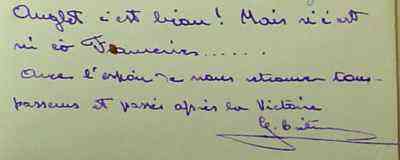 Anglet c'est beau ! Mais si c'est
ni co Francines.......
Avec l'espoir de nous retrouver tous-
passeurs et passés après la Victoire
G.